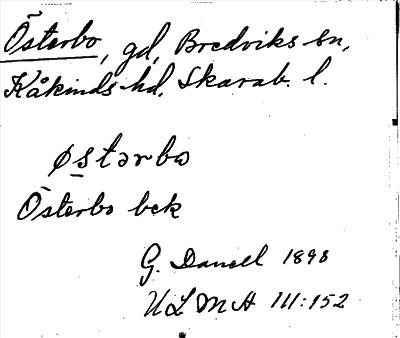 Österbo, gd, Bredviks sn,
Kåkinds hd, Skarab. l.
østərbω
Österbo bek
G. Danell 1898
ULMA 111:152